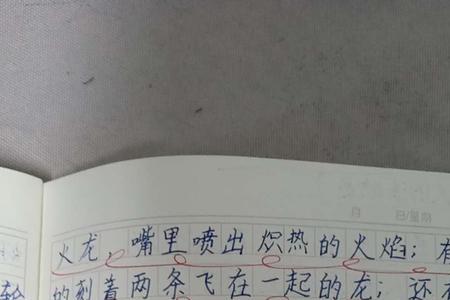 日 日/星期
火龙，嘴里喷出炽热的火焰；有
的刻着两条飞在一起的龙；还有